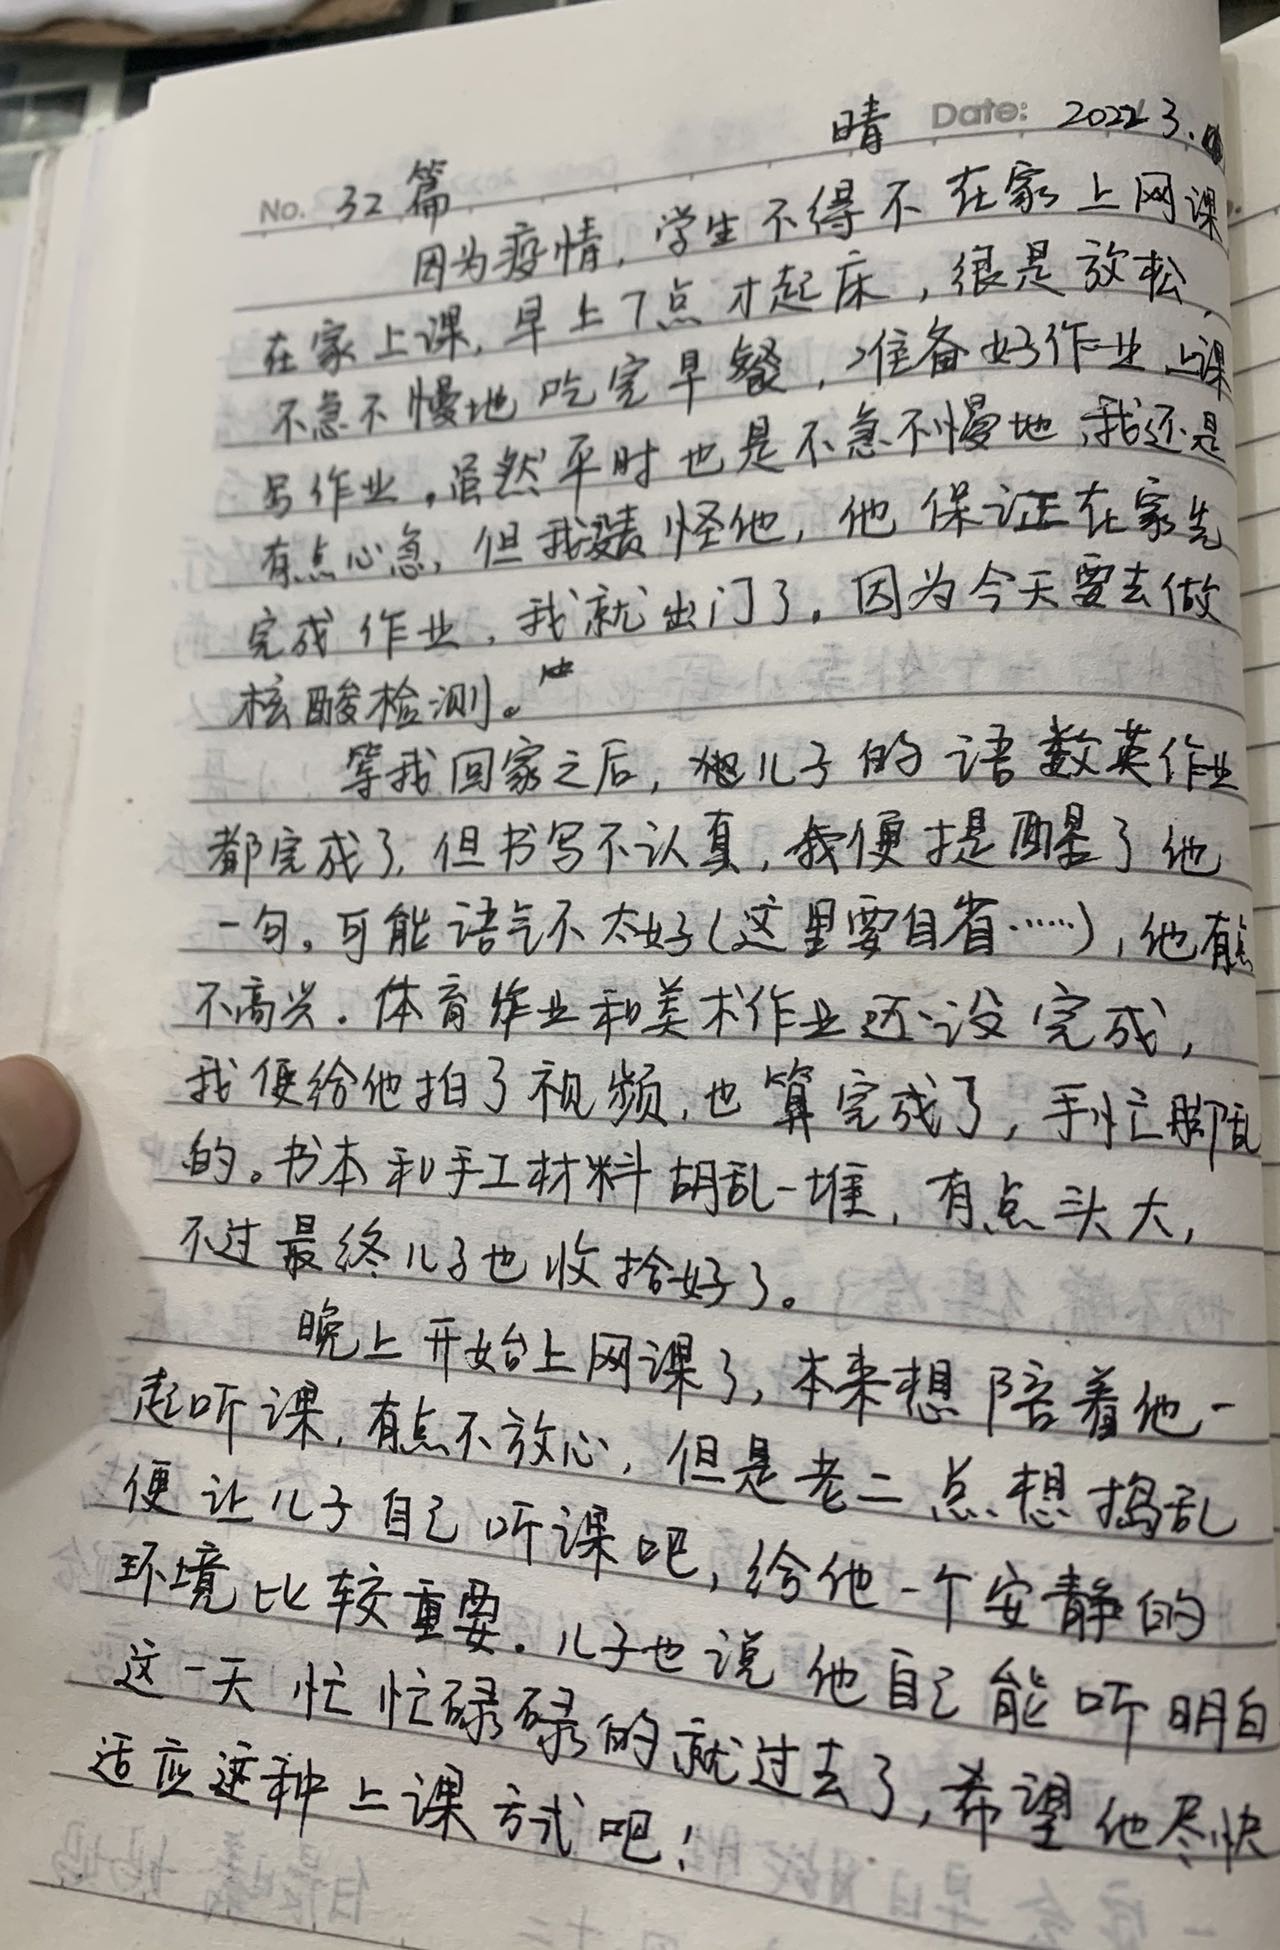 晴 Date: 2022 3.
No. 32篇
因为疫情，学生不得不在家上网课
在家上课，早上7点才起床，很是放松，
不急不慢地吃完早餐，准备好作业上课
写作业。虽然平时也是不急不慢地，我还是
有点心急，但我没责怪他，他保证在家先
完成作业，我就出门了。因为今天要去做
核酸检测。
等我回家之后，儿子的语数英作业
都完成了，但书写不认真，我便提醒了他
一句。可能语气不太好（这里要自省……），他有点
不高兴。体育作业和美术作业还没完成，
我便给他拍了视频，也算完成了，手忙脚乱
的。书本和手工材料胡乱一堆，有点头大，
不过最终儿子也收拾好了。
晚上开始上网课了，本来想陪着他一
起听课，有点不放心，但是老二点想捣乱
便让儿子自己听课吧，给他一个安静的
环境比较重要。儿子也说他自己能听明白
这一天忙忙碌碌的就过去了，希望他尽快
适应这种上课方式吧！